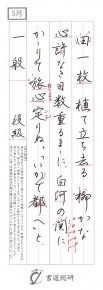 5月
田一枚植て立ち去る柳かな
心許なき日数重るまゝに、白河の関に
かゝりて旅心定りぬ。いかで都へと、
一般 段級
書道総研